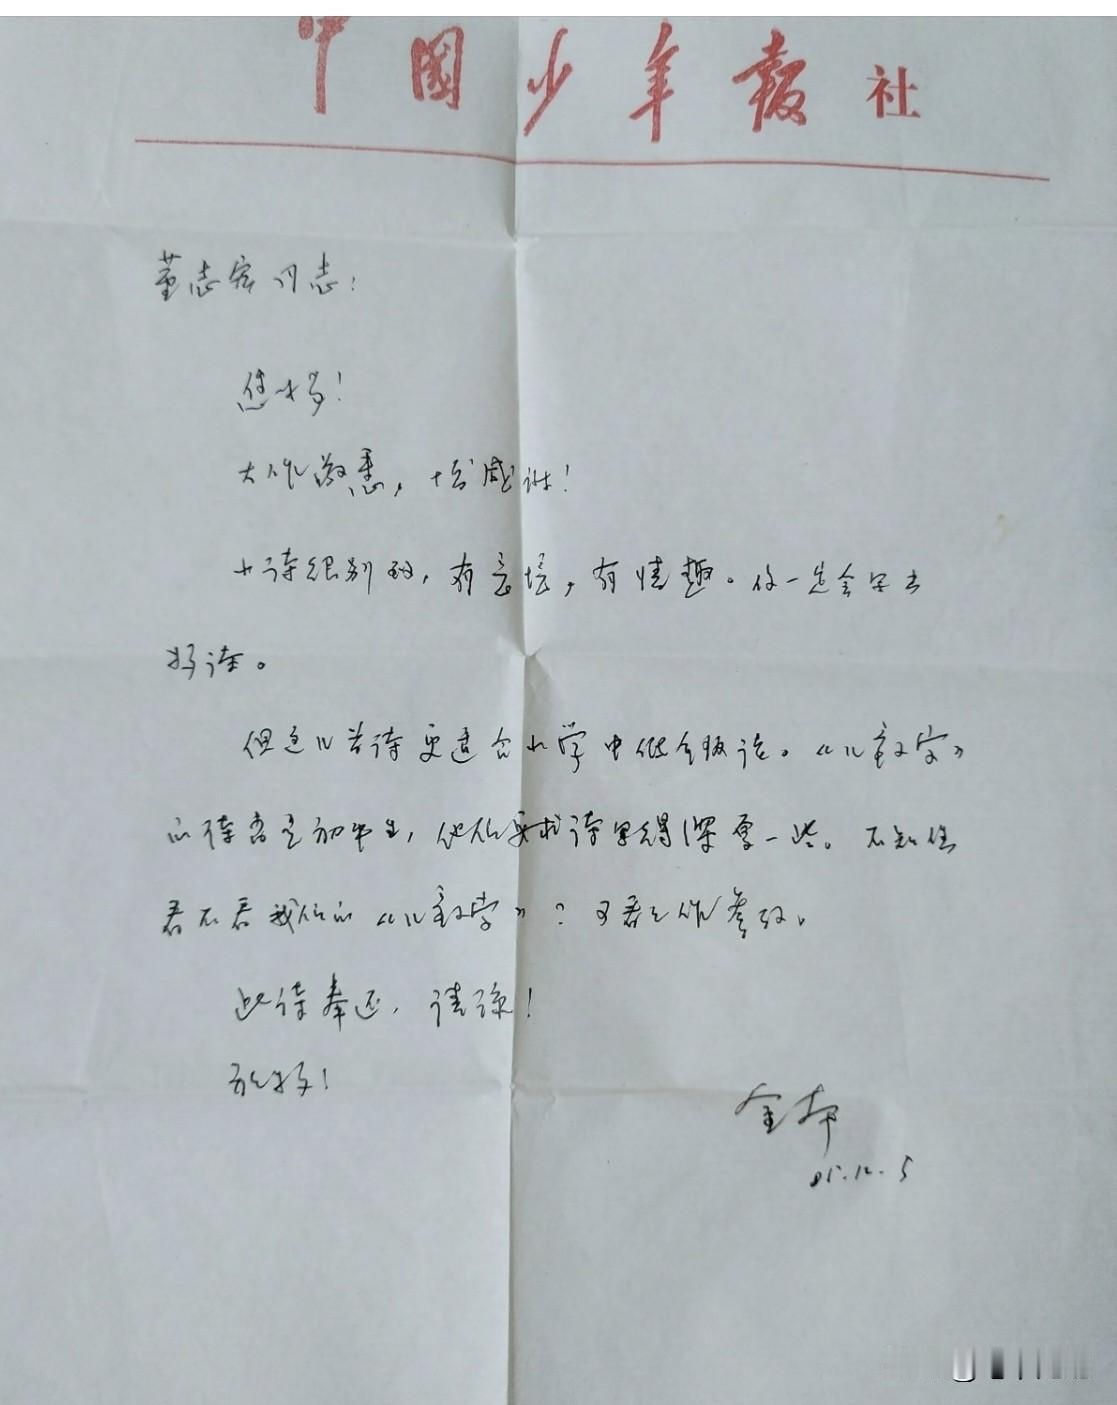 中國少年報社
董志宏同志：
您好！
大作敬悉，十分感谢！
小诗很别致，有意境，有情趣。你一定会写出
好诗。
但这几首诗更适合小学中低年级读。《儿童文学》
的读者是初中生，他们要求诗写得深厚一些。不知您
看不看我们的《儿童文学》？可看看作参考。
此诗奉还，请谅！
敬礼！
金本
85.12.5